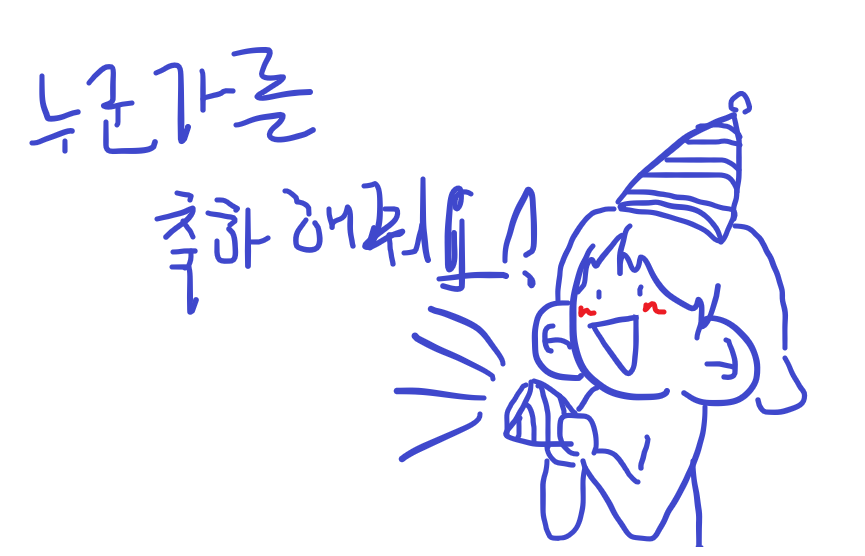 누군가를
축하해줘요!